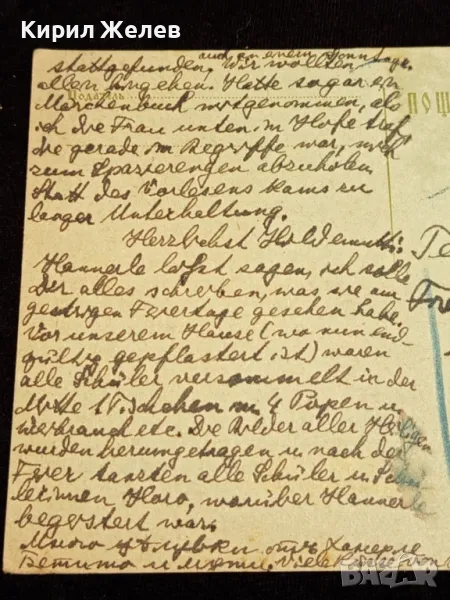 Кирил Желев
auch an einem Sonntage.
stattgefunden. Wir wollten
allen hingehen. Hatte sogar ein
Märchenbuch mitgenommen, als
Подателъ
ich die Frau unten im Hofe traf
die gerade im Begriffe war, mich
zum Spazierengen abzuholen.
Statt des Vorlesens kams zu
langer Unterhaltung.
Herzlichst Hildemutti.
Hannerle lässt sagen, ich solle
Dir alles schreiben, was sie am
gestrigen Feiertage gesehen habe.
Vor unserem Hause (wo nun end-
gültig gepflastert ist) waren
alle Schüler versammelt in der
Mitte 1 Tischchen m 4 Popen u.
etc. Die Bilder aller Heiligen
wurden herumgetragen u nach der
Feier tanzten alle Schüler u. Schü
lerinnen Horo, worüber Hannerle
begeistert war.
Много цѣлувки отъ Ханерле
Бетито и мути. Viele
ПОЩ
bazar.bg